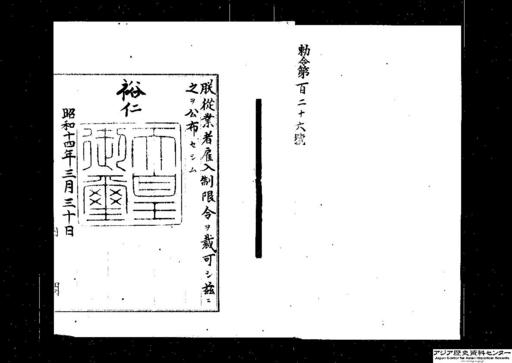 勅令第百二十六號
朕從業者雇入制限令ヲ裁可シ茲ニ
之ヲ公布セシム
裕仁
天皇御璽
昭和十四年三月三十日
アジア歴史資料センター
Japan Center for Asian Historical Records